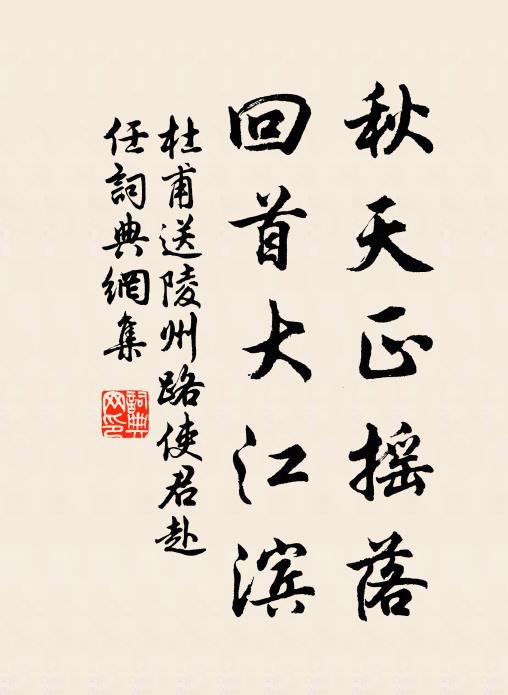 秋天正摇落
回首大江滨
杜甫送陵州路使君赴
任詞典網集
詞典网印